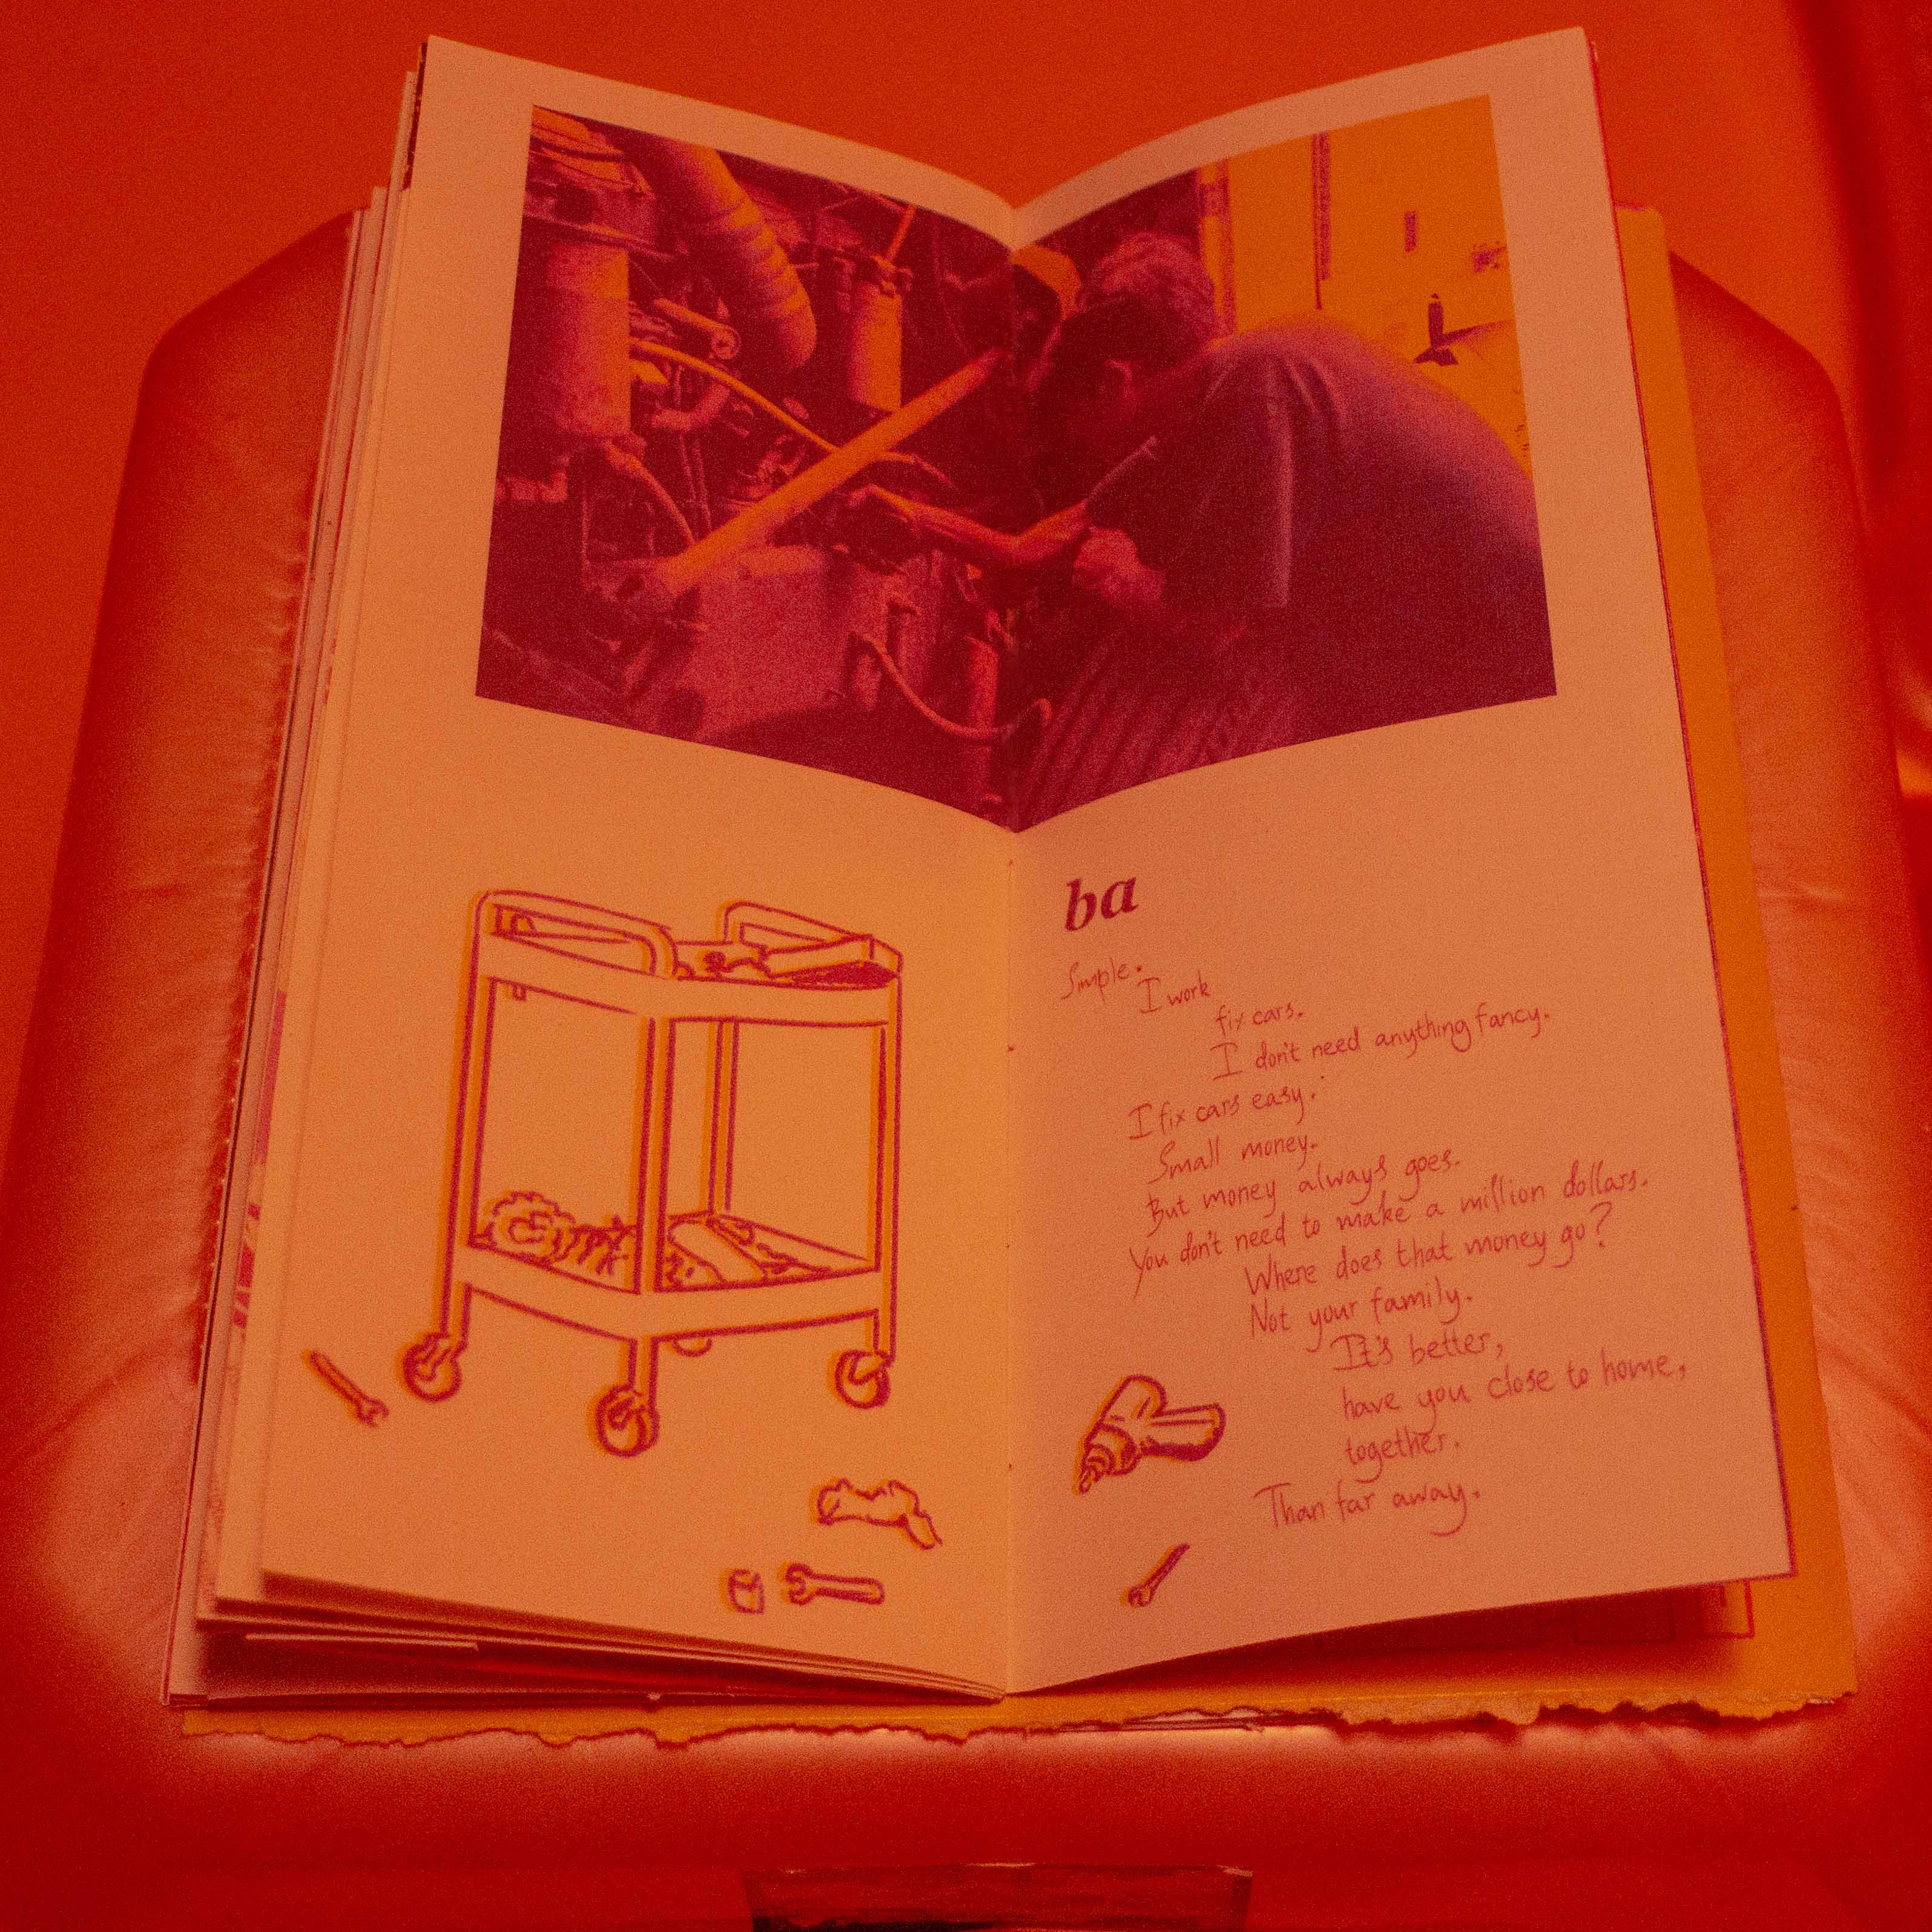 ba
Simple.
I work
fix cars.
I don't need anything fancy.
I fix cars easy.
Small money.
But money always goes.
You don't need to make a million dollars.
Where does that money go?
Not your family.
It's better,
have you close to home,
together.
Than far away.